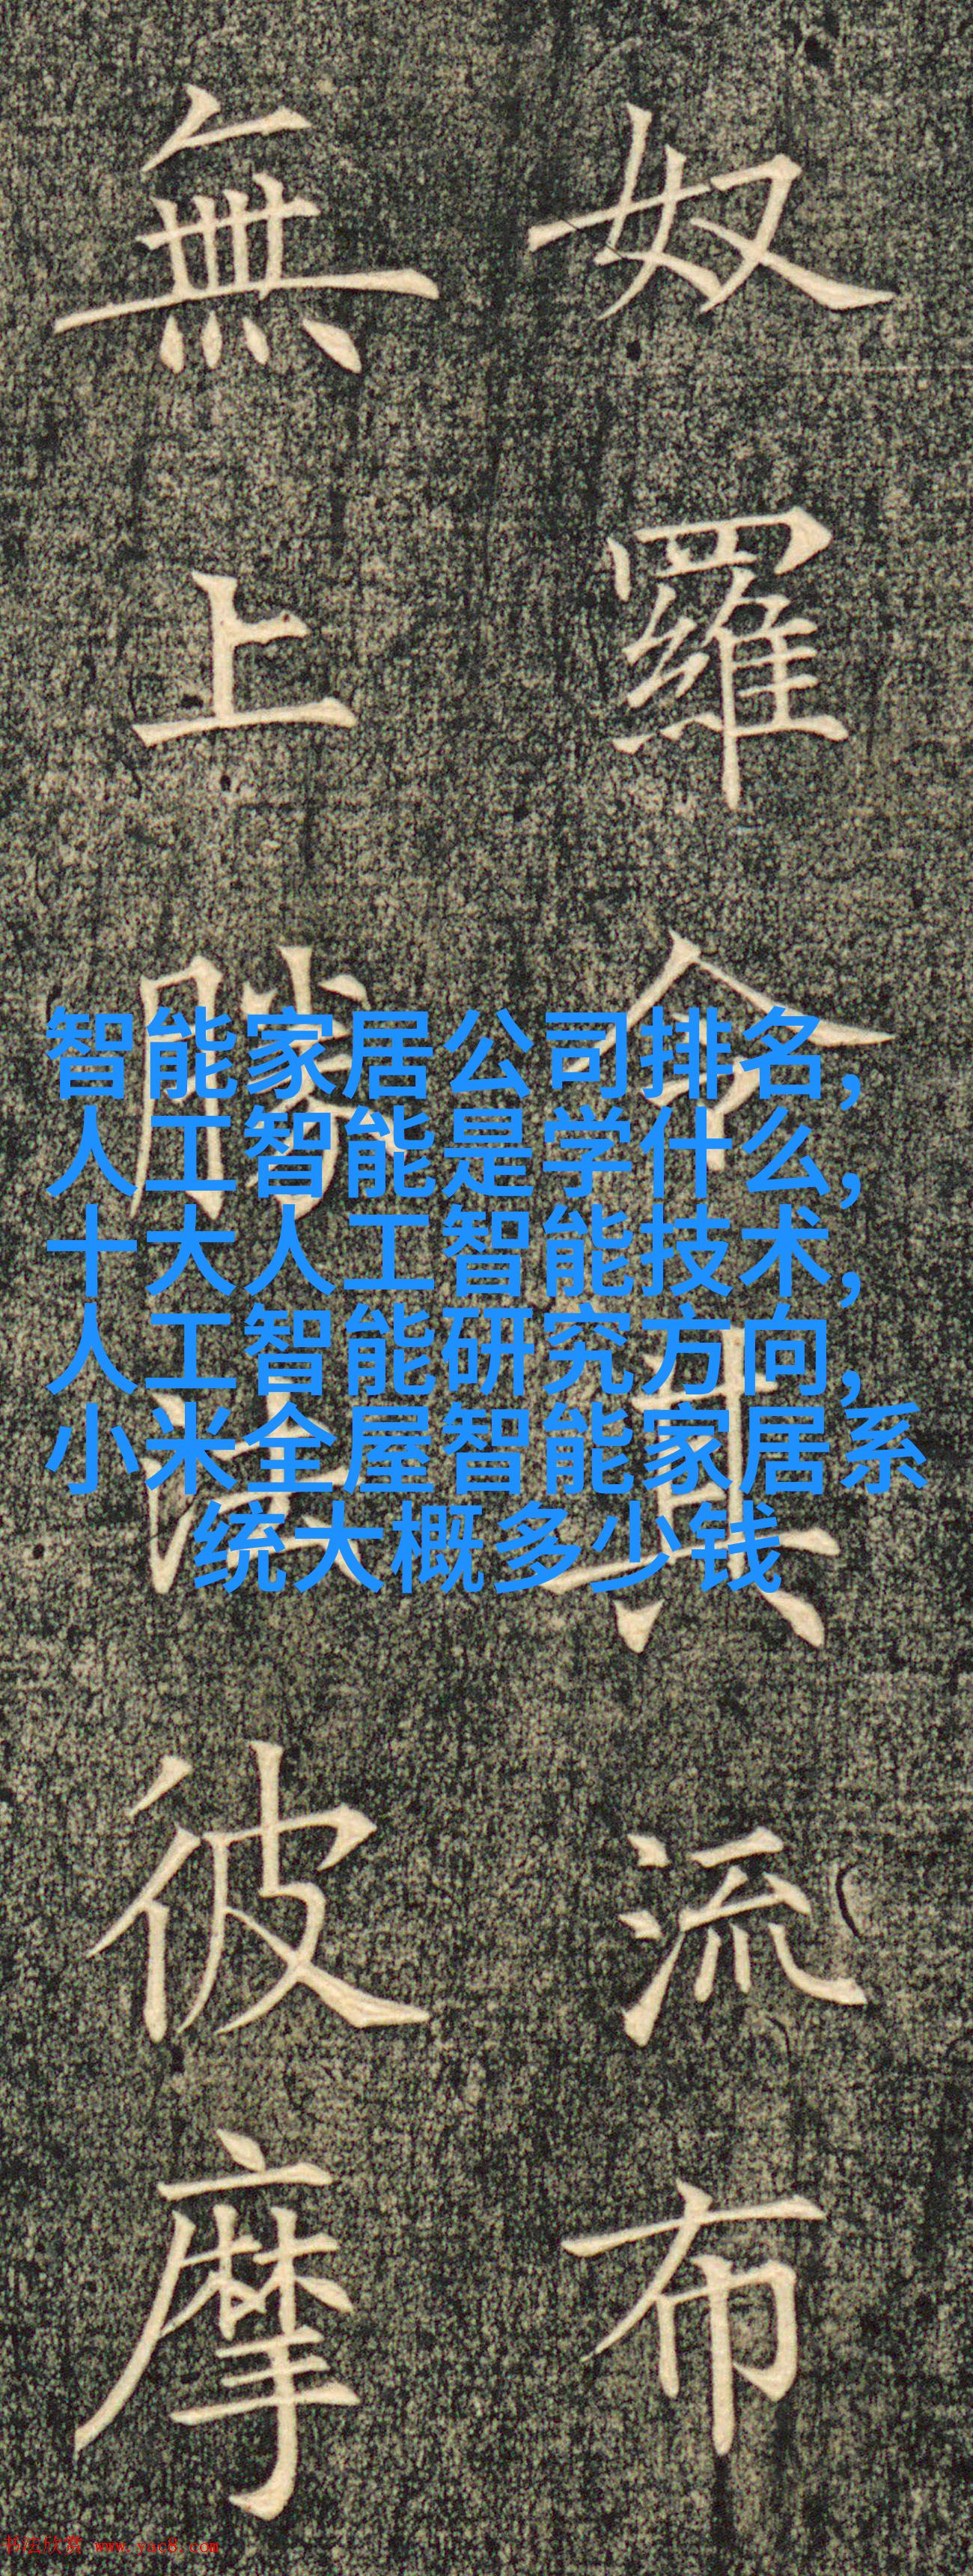 奴羅令其流布
無上勝法彼摩
智能家居公司排名,
人工智能是学什么,
十大人工智能技术,
人工智能研究方向,
小米全屋智能家居系
统大概多少钱
书法欣赏 www.yac8.com